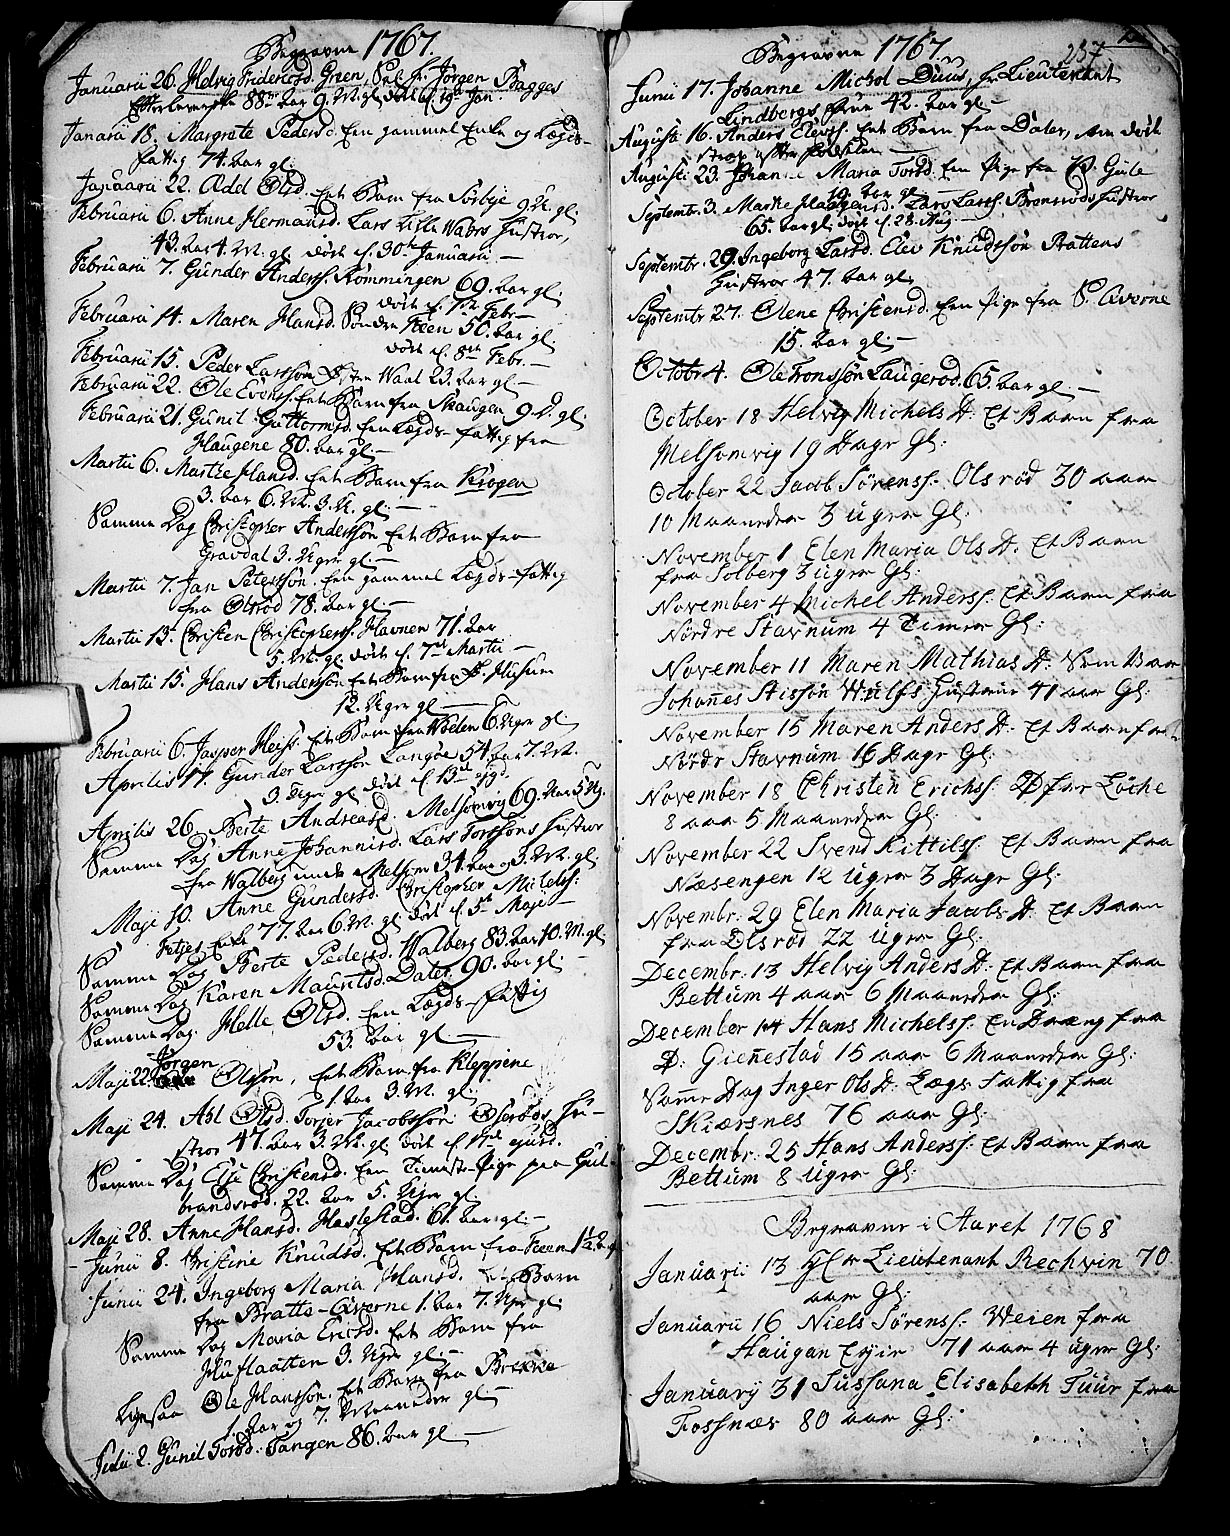 Begravne 1767.
Januarii 26. Helvig Fridericsd. Green, Sal. Hr. Jörgen Bagges
Efterleverske 88 aar 9. M. gl. död d. 19 Jan.
Januarii 18. Margrete Pedersd. Een gammel Enke og Lægds-
fattig 74. aar gl.
Januarii 22. Add Olsd. Eet Barn fra Sörbye 9 U. gl.
Februarii 6. Anne Hermansd. Lars Lille Wabrs Hustroe,
43. aar 4. M. gl. död d. 30te Januarii.—
Februarii 7. Gunder Anderss. Rommingen 69. aar gl.
död d. Febr.—
Februarii 14. Maren Hansd. Sönden Feen 50. aar gl.
död d. 8de Febr.—
Februarii 15. Peder Larssön Östen Waal 23. aar gl.—
Februarii 22. Ole Everss. Eet Barn fra Skaugen 9 D. gl.
Februarii 21. Gunil Guttormsd. Een Lægds-fattig fra
Haugene 80. aar gl.—
Martii 6. Marthe Hansd. Eet Barn fra Krogen
3. aar 6. M. 3. U. gl.—
Samme Dag Christopher Anderssön Eet Barn fra
Gravdal 3. Uger gl—
Martii 7. Jan Peterssön. Een gammel Lægds-fattig
fra Olsröd 78. aar gl—
Martii 13. Christen Christopherss. Havnen 71. aar
5. M. gl. död d. 7de Martii—
Martii 15. Hans Anderssön Eet Barn fra S. Husum
12. Uger gl—
Februarii 6. Jasper Heiss. Eet Barn fra Woelen 6 Uger gl
Aprilis 17. Gunder Larssön Langöe 54. aar 7. M.
3. Uger gl död d. 13de ejgd.
Aprilis 26. Berte Andreasd. Melsomvig 69. Aar 5 Ug.
Samme Dag Anne Johannisd. Lars Torssöns Hustroe
fra Walberg unde Melsom 34. aar og 3. M. gl.
Maji 10. Anne Gundersd. Christopher Michelss:
Feties Enke 77. aar 6. M. gl. död d. 5te Maji—
Samme Dag Berte Pedersd. Walberg 83. aar 10. M. gl
Samme Dag Karen Mauritsd. Daler 90. aar gl.—
Samme Dag Helle Olsd. Een Lægds-fattig
53. aar gl—
Jörgen
Maji 22. Olssön, Eet Barn fra Kleppene
1. aar 3. M. gl.
Maji 24. Abl Olsd. Torjer Jacobssön Oseröds Hu-
stroe 47. aar 3. M. gl. död d. 17de ejusd.
Samme Dag Else Christensd. Een Tieneste-Pige paa Gul-
brandsröd. 22. aar 5. Uger gl.
Maji 28. Anne Hansd. Haslestad. 61. aar gl.—
Junii 8. Christine Knudsd. Eet Barn fra Feen 1½ aar gl
Junii 24. Ingeborg Maria Hansd. Eet Barn
fra Bratte-Averne 1. aar 7. Uger gl.
Samme Dag Maria Ericsd. Eet Barn fra
Huslaatten 3. Uger gl.—
Ligesaa Ole Hanssön. Eet Barn fra Brekke
1. aar og 7. Maaneder gl—
Julii 2. Gunil Torsd. Tangen 86. aar gl—
Begravne 1767
237
Junii 17. Johanne Michol Duus, Hr. Lieutenant
Lindbergs Frue 42. aar gl.—
Augusti 16. Anders Elevss. Eet Barn fra Daler, som döde
strax efter
Augusti 23. Johanne Maria Torsd. Een Pige fra N. Guile
aar gl—
Septembr. 3. Marthe Haagensd. Lars Larss. Brönröds Hustroe
65. aar gl. död d. 28. Aug.—
Septembr. 20. Ingeborg Larsd. Elev Knudssön Brattens
Hustroe 47. aar gl.
Septembr 27. Olene Christensd. Een Pige fra S. Averne
15. aar gl.—
Octobr 4. Ole Tronssön Laugeröd. 65. aar gl.—
October 18 Helvig Michels D: Et Barn fra
Melsomvig 19 Dage Gl:
October 22 Jacob Sörenss: Olsröd 30 aar
10 Maaneder 3 uger Gl:
November 1 Elen Maria Ols D: Et Barn
fra Solberg 3 uger Gl:
November 4 Michel Anderss: Et Barn fra
Nördre Stavnum 4 Timer Gl:
November 11 Maren Mathias D:
Johannes Stissin Wulfs Hustrue 41 aar Gl:
November 15 Maren Anders D: Et Barn fra
Nördr Stavnum 16 Dage Gl:
November 18 Christen Erichss: Löche
8 aar 5 Maaneder Gl:
November 22 Svend Kittilss: Et Barn fra
Næsengen 12 Uger 3 Dage Gl:
Novembr: 29 Elen Maria Jacobs D: Et Barn
fra Olsröd 22 Uger Gl:
Decembr: 13 Helvig Anders D: Et Barn fra
Bettum 4 aar 6 Maaneder Gl:
December 14 Hans Michelss: En Dreng fra
S: Giennestad 15 aar 6 Maaneder Gl:
Samme Dag Inger Ols D: Lægs Fattig fra
Skiærsnes 76 aar Gl:
Decembr: 25 Hans Anderss: Et Barn fra
Bettum 8 Uger Gl:
Begravne i Aaret 1768
Januarii 13 Hr Lieutenant Rechvin 70
aar Gl:
Januarii 16 Niels Sörenss: Weien fra
Haugan Eyje 71 aar 4 uger Gl:
Januarij 31 Sussana Elisabeth Tuur fra
Fossnæs 80 aar Gl: